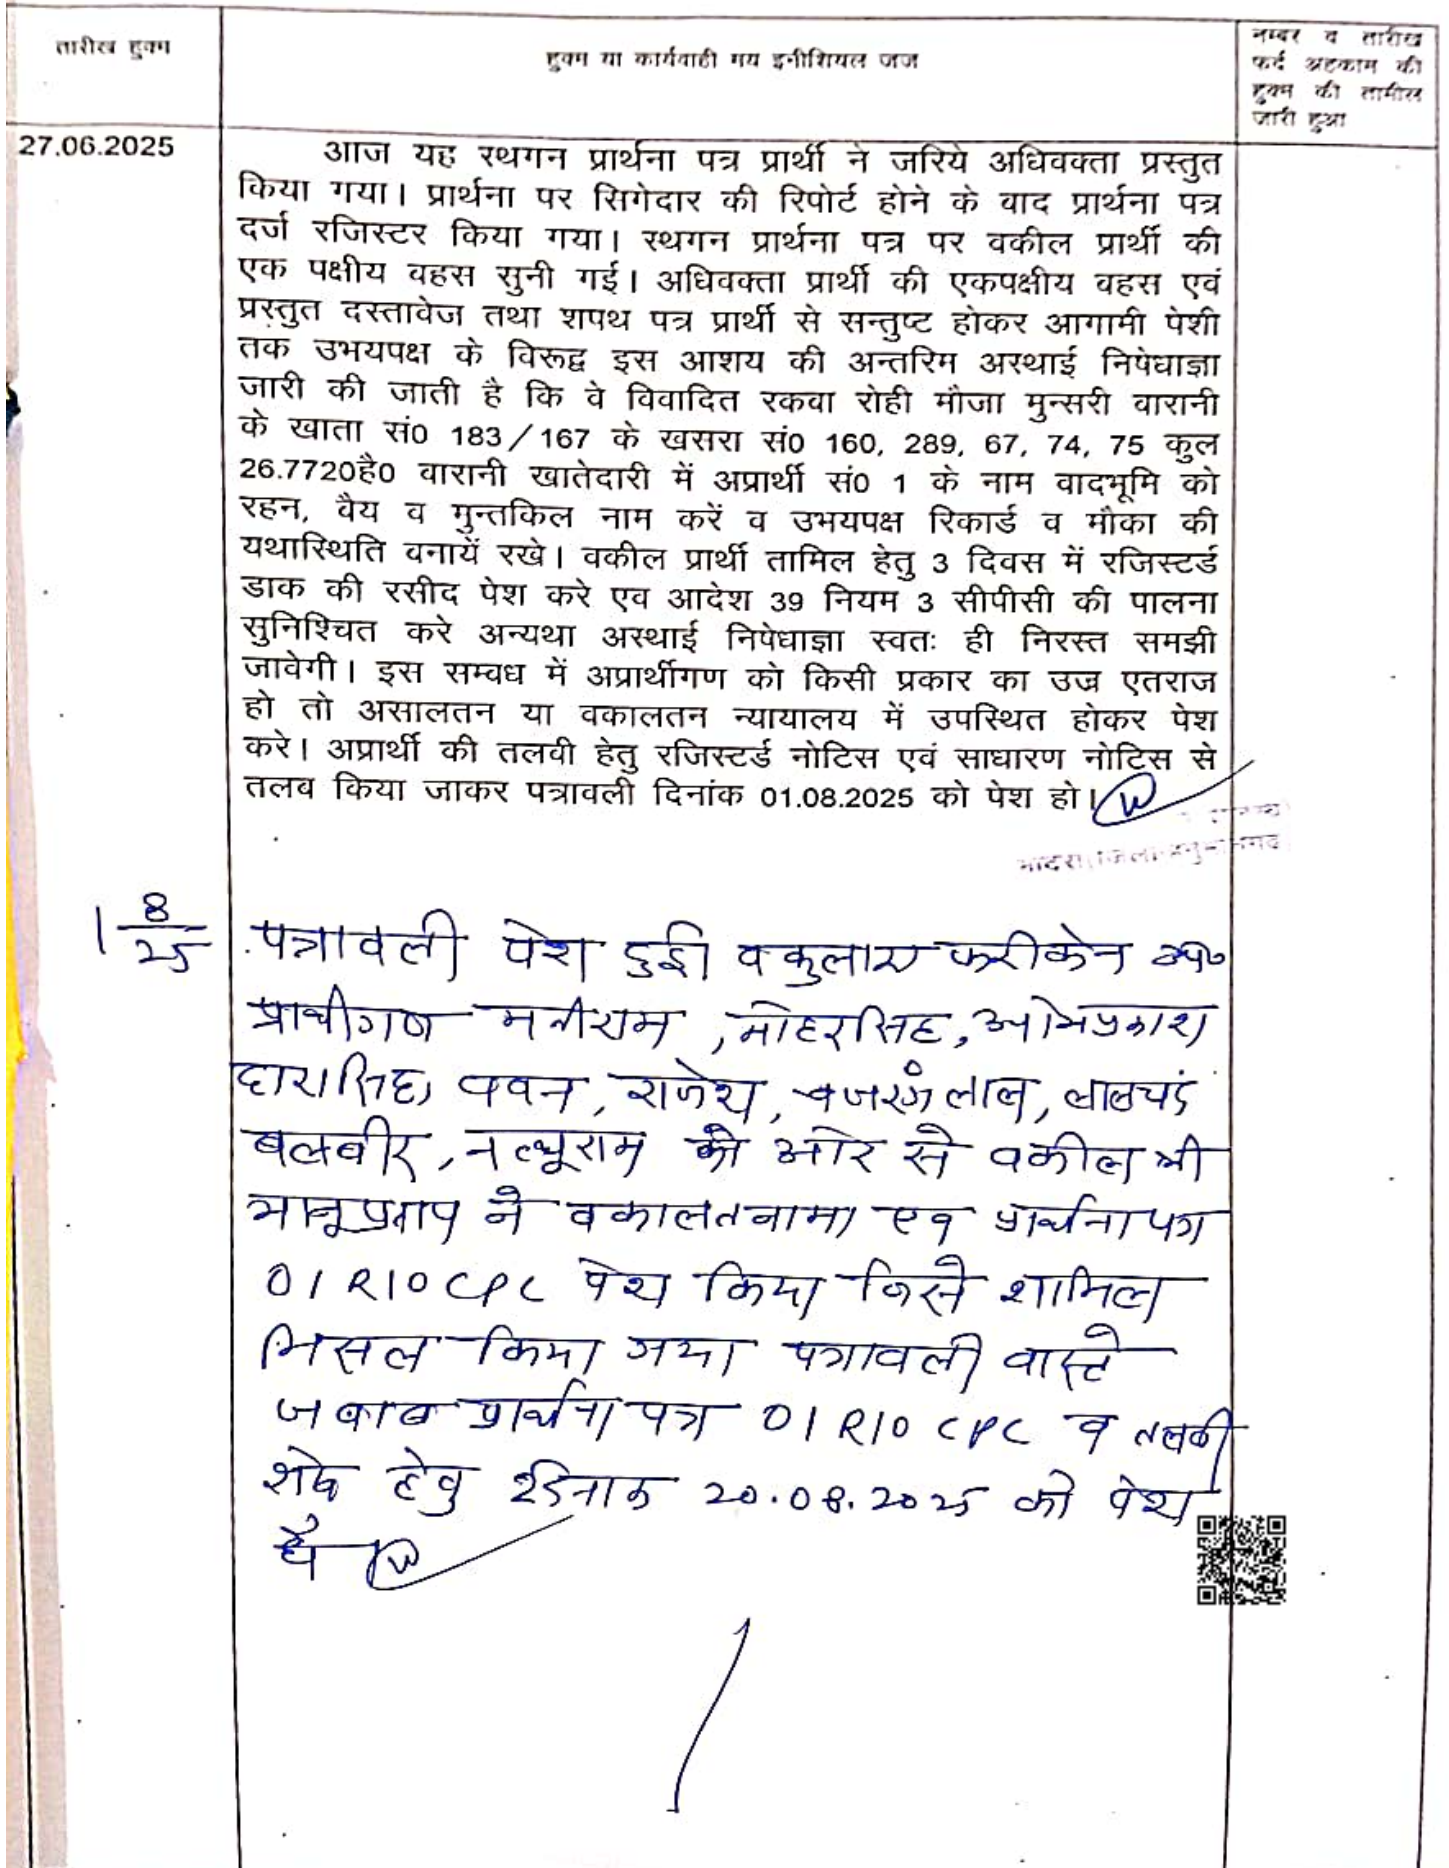 तारीख हुक्म
हुक्म या कार्यवाही मय इनीशियल जज
नम्बर व तारीख
फर्द अहकाम की
हुक्म की तामील
जारी हुआ
27.06.2025
आज यह स्थगन प्रार्थना पत्र प्रार्थी ने जरिये अधिवक्ता प्रस्तुत
किया गया। प्रार्थना पर सिगेदार की रिपोर्ट होने के बाद प्रार्थना पत्र
दर्ज रजिस्टर किया गया। स्थगन प्रार्थना पत्र पर वकील प्रार्थी की
एक पक्षीय वहस सुनी गई। अधिवक्ता प्रार्थी की एकपक्षीय वहस एवं
प्रस्तुत दस्तावेज तथा शपथ पत्र प्रार्थी से सन्तुष्ट होकर आगामी पेशी
तक उभयपक्ष के विरूद्व इस आशय की अन्तरिम अस्थाई निषेधाज्ञा
जारी की जाती है कि वे विवादित रकवा रोही मौजा मुन्सरी वारानी
के खाता सं0 183/167 के खसरा सं0 160, 289, 67, 74, 75 कुल
26.7720है0 वारानी खातेदारी में अप्रार्थी सं0 1 के नाम वादभूमि को
रहन, वैय व मुन्तकिल नाम करें व उभयपक्ष रिकार्ड व मौका की
यथास्थिति वनायें रखे। वकील प्रार्थी तामिल हेतु 3 दिवस में रजिस्टर्ड
डाक की रसीद पेश करे एव आदेश 39 नियम 3 सीपीसी की पालना
सुनिश्चित करे अन्यथा अस्थाई निषेधाज्ञा स्वतः ही निरस्त समझी
जावेगी। इस सम्वध में अप्रार्थीगण को किसी प्रकार का उज्र एतराज
हो तो असालतन या वकालतन न्यायालय में उपस्थित होकर पेश
करे। अप्रार्थी की तलवी हेतु रजिस्टर्ड नोटिस एवं साधारण नोटिस से
तलब किया जाकर पत्रावली दिनांक 01.08.2025 को पेश हो।
भादरा जिला हनुमानगढ़
1 8/25
पत्रावली पेश हुई। वकुलाए फरीकेन उप०
प्रार्थीगण मनीराम, मोहरसिह, ओमप्रकाश
दारासिह, पवन, राजेश, बजरंग लाल, लालचंद
बलवीर, नत्थूराम की ओर से वकील श्री
भानूप्रताप ने वकालतनामा एव प्रार्थना पत्र
01 R10 CPC पेश किया जिसे शामिल
मिसल किया गया पत्रावली वास्ते
जवाब प्रार्थना पत्र 01 R10 CPC व तलबी
शेष हेतु दिनांक 20.08.2025 को पेश
हो